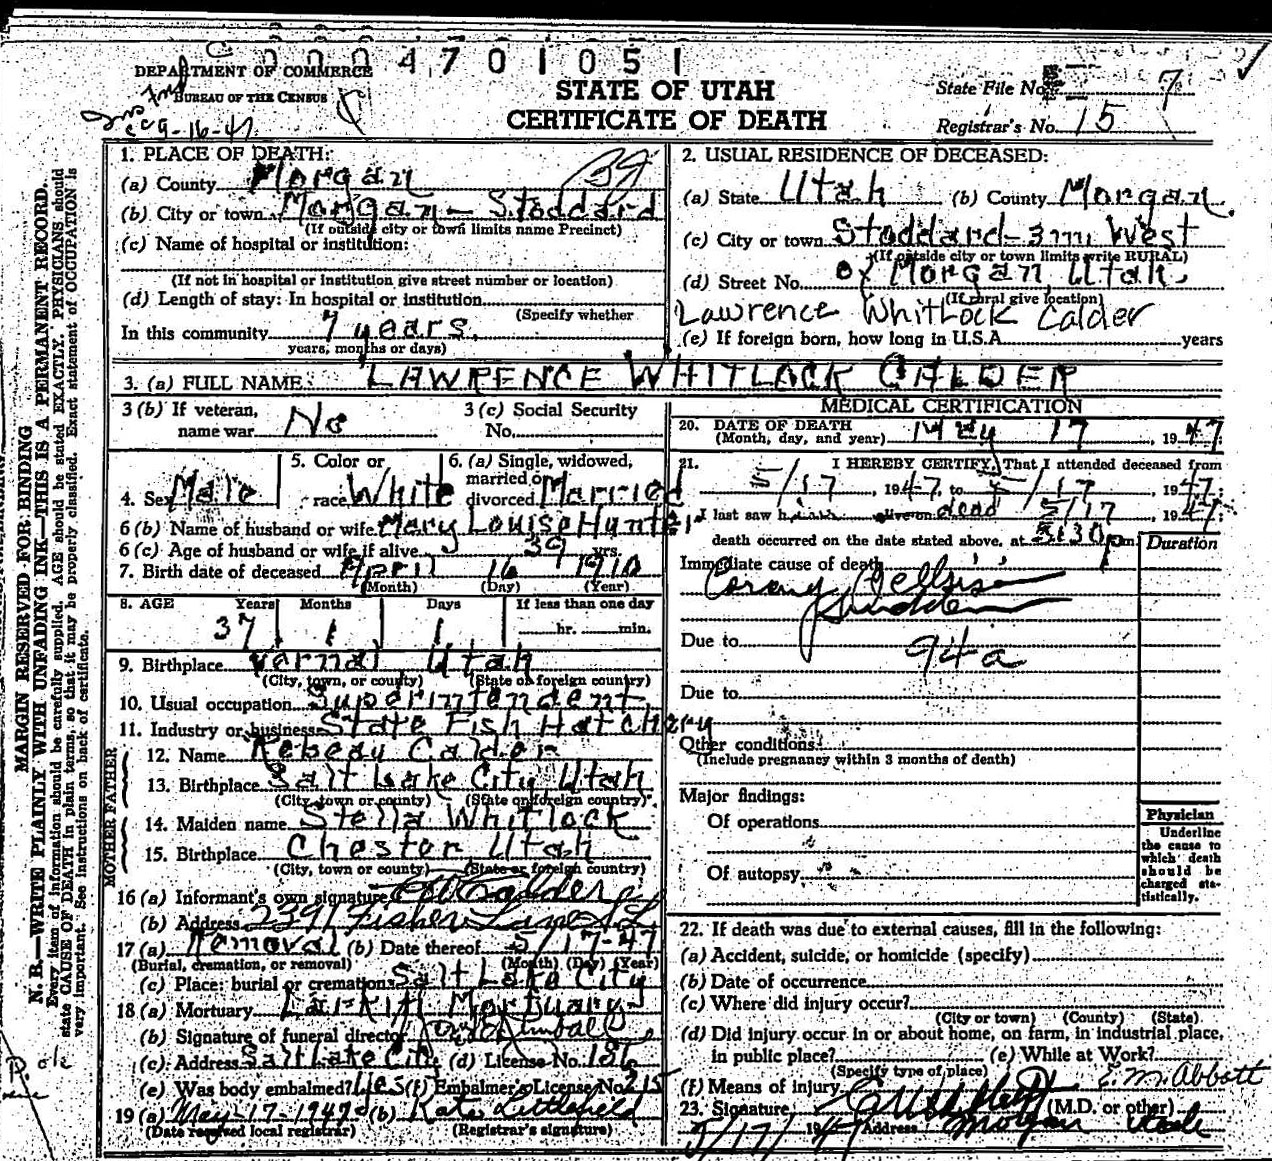 0 0 0 4 7 0 1 0 5 1
DEPARTMENT OF COMMERCE
BUREAU OF THE CENSUS
9-16-47
STATE OF UTAH
CERTIFICATE OF DEATH
State File No. 7
Registrar's No. 15
MARGIN RESERVED FOR BINDING
N. B.—WRITE PLAINLY WITH UNFADING INK—THIS IS A PERMANENT RECORD.
Every item of information should be carefully supplied. AGE should be stated EXACTLY. PHYSICIANS should
state CAUSE OF DEATH in plain terms, so that it may be properly classified. Exact statement of OCCUPATION is
very important. See instructions on back of certificate.
1. PLACE OF DEATH:
(a) County Morgan
(b) City or town Morgan - Stoddard
(If outside city or town limits name Precinct)
(c) Name of hospital or institution:
(If not in hospital or institution give street number or location)
(d) Length of stay: In hospital or institution
(Specify whether
In this community 7 years.
years, months or days)
2. USUAL RESIDENCE OF DECEASED:
(a) State Utah (b) County Morgan.
(c) City or town Stoddard-3m West
(If outside city or town limits write RURAL)
(d) Street No. of Morgan, Utah.
(If rural give location)
Lawrence Whitlock Calder
(e) If foreign born, how long in U.S.A. years
3. (a) FULL NAME: LAWRENCE WHITLOCK CALDER
3 (b) If veteran, name war No
3 (c) Social Security No.
4. Sex Male
5. Color or race White
6. (a) Single, widowed, married or divorced Married
6 (b) Name of husband or wife Mary Louise Hunter
6 (c) Age of husband or wife if alive 39 yrs.
7. Birth date of deceased April 16 1910
(Month) (Day) (Year)
8. AGE Years Months Days If less than one day
37 1 1 hr. min.
9. Birthplace Vernal, Utah
(City, town, or county) (State or foreign country)
10. Usual occupation Superintendent
11. Industry or business State Fish Hatchery
FATHER
12. Name Calder
13. Birthplace Salt Lake City Utah
(City, town or county) (State or foreign country)
MOTHER
14. Maiden name Stella Whitlock
15. Birthplace Chester Utah
(City, town or county) (State or foreign country)
16 (a) Informant's own signature Calder
(b) Address 2391 Fisher Lane S L
17 (a) Removal (b) Date thereof 5/17-47
(Burial, cremation, or removal) (Month) (Day) (Year)
(c) Place: burial or cremation Salt Lake City
18 (a) Mortuary Larkin Mortuary
(b) Signature of funeral director Kimball
(c) Address Salt Lake City (d) License No. 186
(e) Was body embalmed? Yes (f) Embalmer's License No. 215
19 (a) May-17-1947 (b) Kate Littlefield
(Date received local registrar) (Registrar's signature)
MEDICAL CERTIFICATION
20. DATE OF DEATH
(Month, day, and year) May 17, 1947
21. I HEREBY CERTIFY, That I attended deceased from
5/17, 1947, to 5/17, 1947;
I last saw h alive on dead 5/17 1947
death occurred on the date stated above, at 3:30 p m.
Duration
Immediate cause of death
94a
Due to
Due to
Other conditions
(Include pregnancy within 3 months of death)
Major findings:
Of operations
Of autopsy
Physician
Underline
the cause to
which death
should be
charged sta-
tistically.
22. If death was due to external causes, fill in the following:
(a) Accident, suicide, or homicide (specify)
(b) Date of occurrence
(c) Where did injury occur?
(City or town) (County) (State)
(d) Did injury occur in or about home, on farm, in industrial place,
in public place? (e) While at Work?
(Specify type of place)
(f) Means of injury E. M. Abbott
23. Signature (M.D. or other)
5/17/1947 Address Morgan Utah